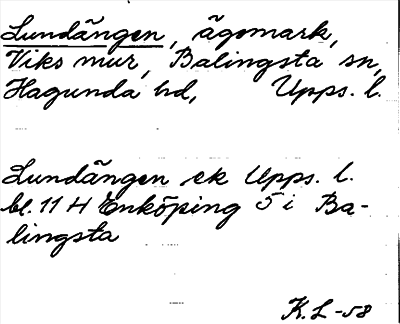 Lundängen, ägomark,
Viks mur, Balingsta sn,
Hagunda hd, Upps. l.
Lundängen ek Upps. l.
bl. 11 H Enköping 5 i Ba-
lingsta
K.L -58